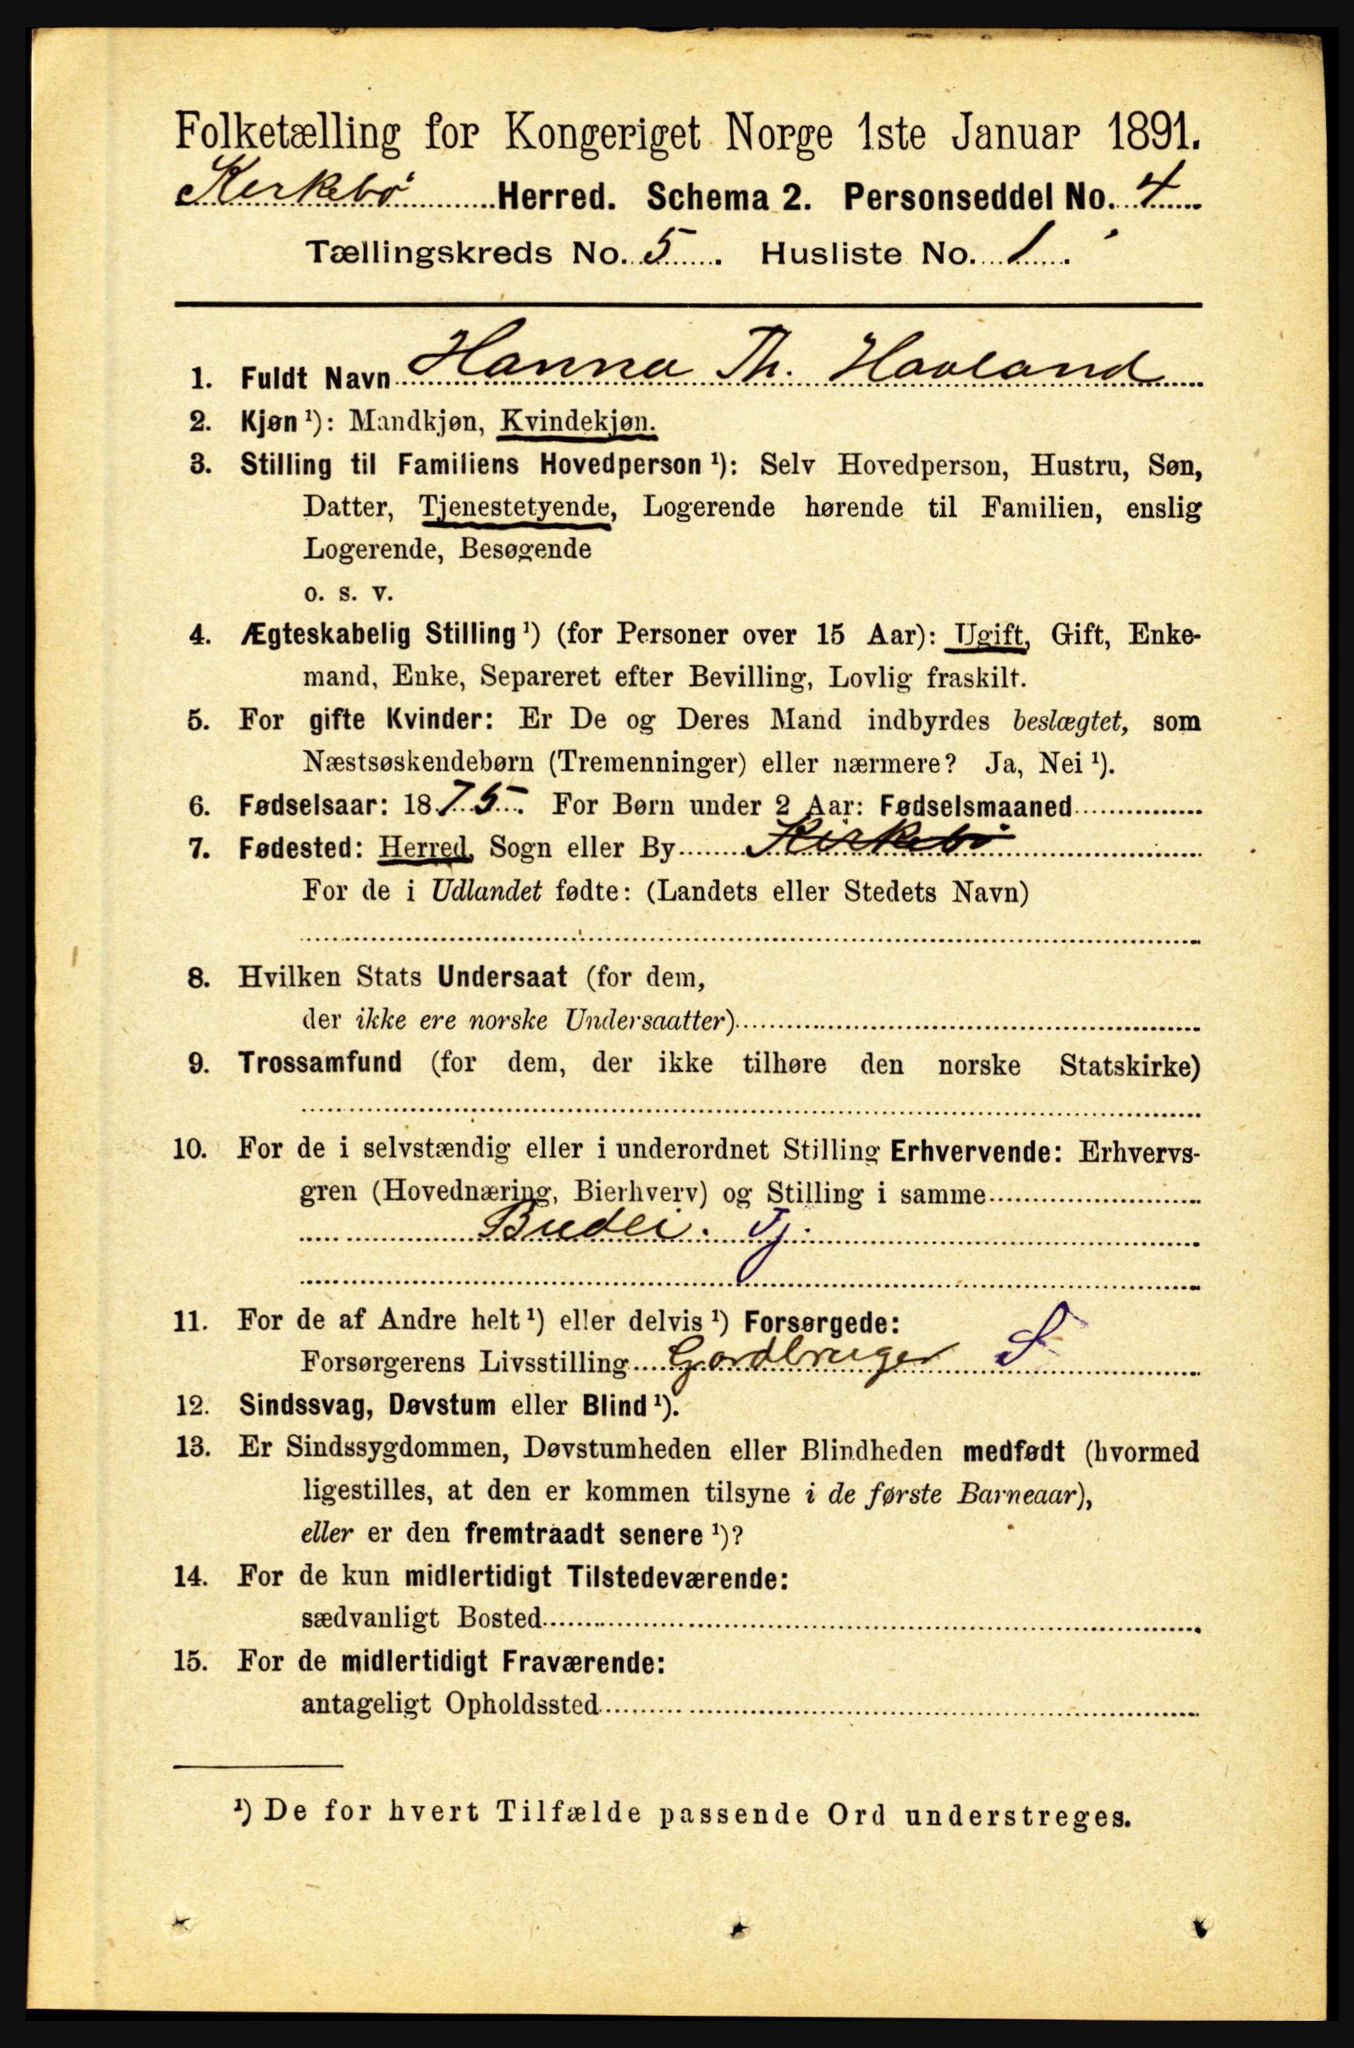 Folketælling for Kongeriget Norge 1ste Januar 1891.
Kirkebø Herred. Schema 2. Personseddel No. 4
Tællingskreds No. 5. Husliste No. 1.
1. Fuldt Navn Hanna Th. Haaland
2. Kjøn ¹): Mandkjøn, Kvindekjøn.
3. Stilling til Familiens Hovedperson ¹): Selv Hovedperson, Hustru, Søn,
Datter, Tjenestetyende, Logerende hørende til Familien, enslig
Logerende, Besøgende
o. s. v.
4. Ægteskabelig Stilling ¹) (for Personer over 15 Aar): Ugift, Gift, Enke-
mand, Enke, Separeret efter Bevilling, Lovlig fraskilt.
5. For gifte Kvinder: Er De og Deres Mand indbyrdes beslægtet, som
Næstsøskendebørn (Tremenninger) eller nærmere? Ja, Nei ¹).
6. Fødselsaar: 1875. For Børn under 2 Aar: Fødselsmaaned
7. Fødested: Herred, Sogn eller By Kirkebø
For de i Udlandet fødte: (Landets eller Stedets Navn)
8. Hvilken Stats Undersaat (for dem,
der ikke ere norske Undersaatter)
9. Trossamfund (for dem, der ikke tilhøre den norske Statskirke)
10. For de i selvstændig eller i underordnet Stilling Erhvervende: Erhvervs-
gren (Hovednæring, Bierhverv) og Stilling i samme
Budei. Tj.
11. For de af Andre helt ¹) eller delvis ¹) Forsørgede:
Forsørgerens Livsstilling Gardbruger S
12. Sindssvag, Døvstum eller Blind ¹).
13. Er Sindssygdommen, Døvstumheden eller Blindheden medfødt (hvormed
ligestilles, at den er kommen tilsyne i de første Barneaar),
eller er den fremtraadt senere ¹)?
14. For de kun midlertidigt Tilstedeværende:
sædvanligt Bosted
15. For de midlertidigt Fraværende:
antageligt Opholdssted
¹) De for hvert Tilfælde passende Ord understreges.